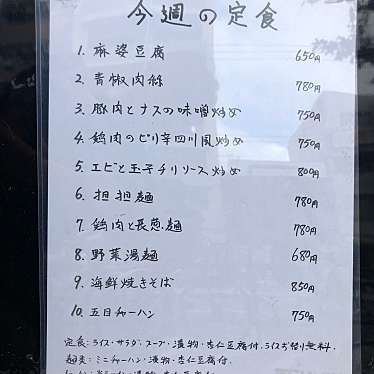 今週の定食
1. 麻婆豆腐 650円
2. 青椒肉絲 780円
3. 豚肉とナスの味噌炒め 750円
4. 鶏肉のピリ辛四川風炒め 750円
5. エビと玉子チリソース炒め 800円
6. 担担麺 780円
7. 鶏肉と長葱麺 780円
8. 野菜湯麺 680円
9. 海鮮焼きそば 850円
10. 五目チャーハン 750円
定食:ライス・サラダ・スープ・漬物・杏仁豆腐付.ライスお替り無料.
麺类:ミニチャーハン・漬物・杏仁豆腐付.